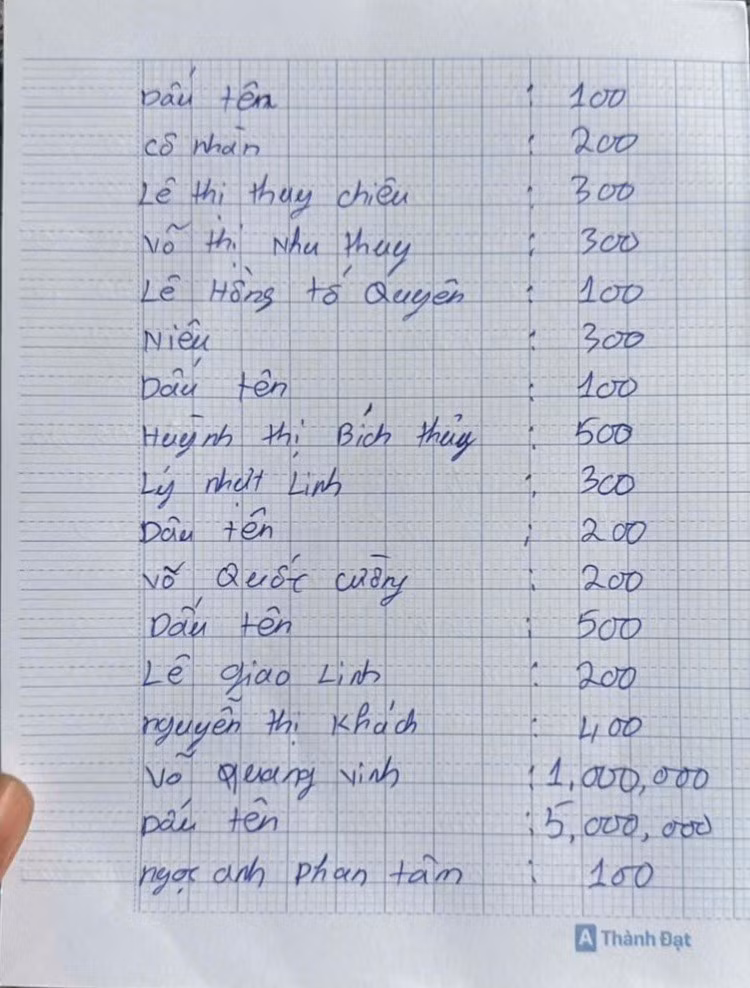 Dấu tên : 100
cô nhàn : 200
Lê thị thuy chiêu : 300
Võ thị Nhu thuy : 300
Lê Hồng tố Quyên : 100
Niêu : 300
Dấu tên : 100
Huỳnh thị Bích thủy : 500
Lý nhứt Linh : 300
Dâu tên : 200
Võ Quốc cường : 200
Dấu tên : 500
Lê giao Linh : 200
nguyễn thị Khách : 400
Võ Quang vinh : 1,000,000
Dấu tên : 5,000,000
ngọc anh phan tâm : 100
A Thành Đạt